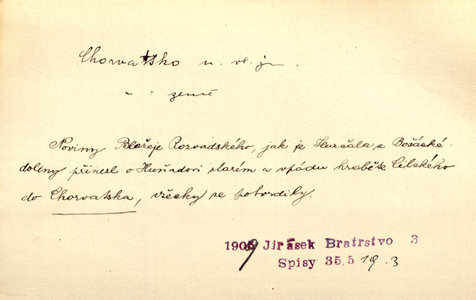 Chorvatsko n. vl. jm.
" : země
Noviny Blažeje Rozvadského, jak je Hurčala, z Bošácké
doliny přinesl o Huňadovi starém a vpádu hraběte Cilského
do Chorvatska, všecky se potvrdily.
1909 Jirásek Bratrstvo 3
Spisy 35.5 19.3